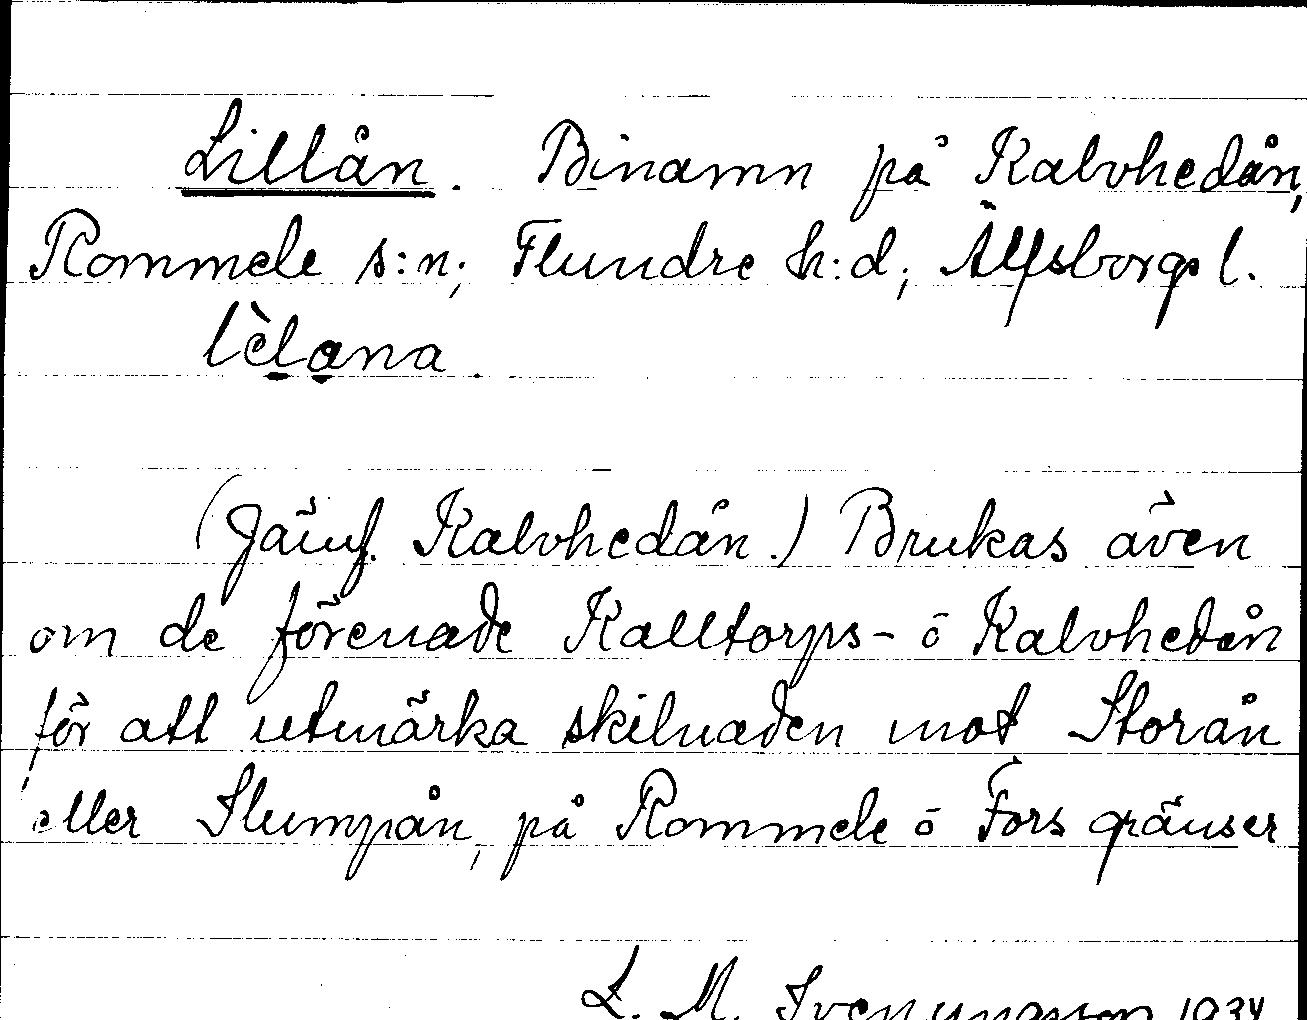 Lillån. Binamn på Kalvhedån,
Rommele s:n; Flundre h:d; Älfsborgs l.
lèlana.
(Jämf. Kalvhedån.) Brukas även
om de förenade Kalltorps- ō Kalvhedån
för att utmärka skilnaden mot Storån
eller Slumpån, på Rommele ō Fors gränser
L. M. Svenungsson 1934